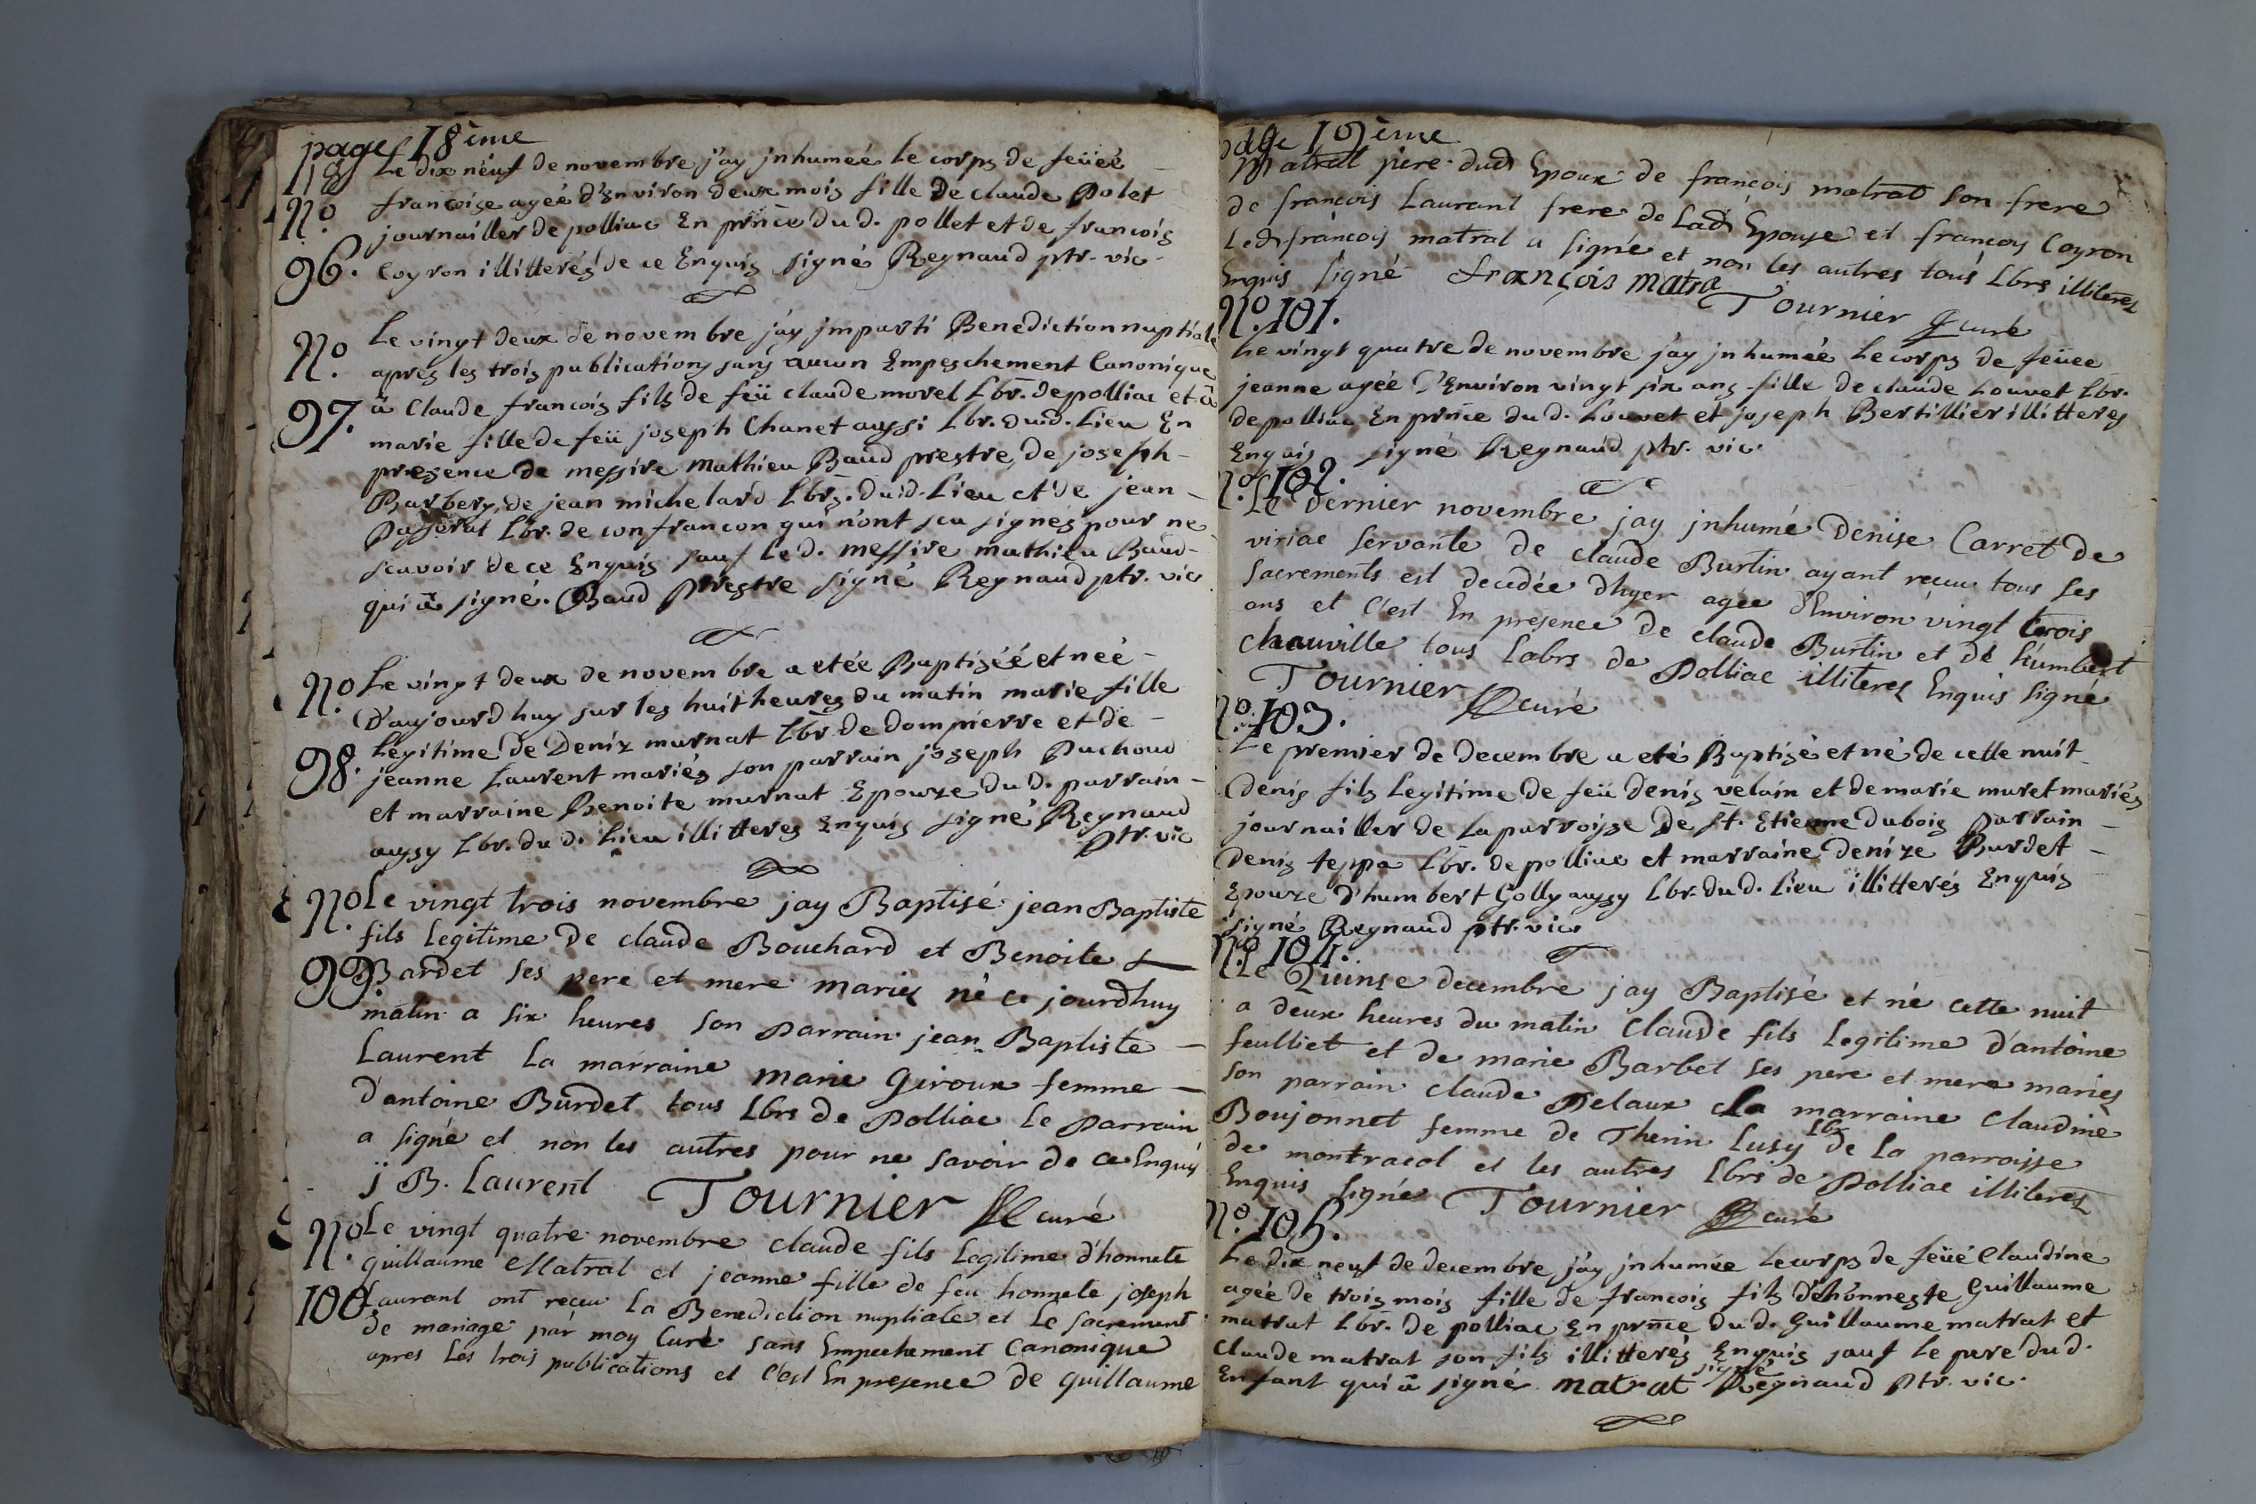 page 18ème
Le dix neuf de novembre j'ay jnhumeé le corps de feüeé
Nº
francoise ageé d'Environ deux mois fille de claude Polet
journaillier de polliac En prñce du d. pollet et de francois
96.
Coyron illitterés de ce Enquis signé Reynaud ptr. vic.
Nº
Le vingt deux de novembre j'ay jmparti Benediction nuptiale
apres les trois publications sans aucun Empeschement Canonique
97.
â Claude francois fils de feü claude morel Lbr. de polliac et â
marie fille de feü joseph Chanet aussi Lbr. dud. Lieu En
presence de messire mathieu Baud prestre, de joseph
Barbery, de jean michelard Lbrs. dud. Lieu et de jean
Passerat Lbr. de confrancon qui n'ont sçu signés pour ne
scavoir de ce Enquis sauf Le d. messire mathieu Baud
qui â signé. Baud Prestre signé Reynaud ptr. vic
Nº
Le vingt deux de novembre a etée Baptiséé et neé
D'aujourd huy sur les huit heures du matin marie fille
98.
Legitime de Deniz murnat Lbr de dompierre et de
jeanne Laurent mariés son parrain joseph Puchoud
et marraine Benoite murnat Epouze du d. parrain
aussy Lbr. du d. Lieu illitteres Enquis signé Reynaud
Ptr. vic
Nº
Le vingt trois novembre jay Baptisé jean Baptiste
fils legitime de claude Bouchard et Benoite
99.
Bardet ses pere et mere mariez né ce jourdhuy
matin a six heures son Parrain jean Baptiste
Laurent La marraine marie Giroux femme
d'antoine Burdet tous Lbrs de Polliac Le Parrain
a signé et non les autres pour ne savoir de ce Enquis
j B. Laurent Tournier curé
Nº
Le vingt quatre novembre claude fils legitime d'honnete
guillaume Matral et jeanne fille de feu honnete joseph
100
Laurant ont reçeu La Benediction nuptiale et Le sacrement
de mariage par moy Curé sans Empechement Canonique
apres Les trois publications et C'est En presence de guillaume
page 19ème
Matral pere dud Epoux de françois matral son frere
de françois Laurant frere de Lad Epouse et françoy Coyron
Led françois matral a signé et non les autres tous Lbrs illiterez
Enquis signé françois matra
Tournier curé
Nº. 101.
Le vingt quatre de novembre j'ay jnhuméé Le corps de feüee
jeanne agée d'Environ vingt six ans fille de claude Louvet Lbr.
de polliac En prñce du d. Louvet et joseph Bertillier illitteres
Enquis signé Reynaud ptr. vic.
Nº. 102.
Le Dernier novembre jay jnhumé Denise Carret de
viriac servante de claude Burtin ayant reçeu tous les
sacrements est decedée dhyer agee d'Environ vingt trois
ans et C'est En presence de claude Burtin et de humbert
Chauville tous Labrs de Polliac illiterez Enquis signé
Tournier curé
Nº. 103.
Le premier de decembre a eté Baptisé et né de cette nuit
Denis fils Legitime de feü denis velain et de marie muret mariés
journailler de la parroisse de St. Etienne dubois Parrain
Denis teppa Lbr. de polliac et marraine denize Burdet
Epouze d'humbert Golly aussy Lbr. du d. Lieu illitterés Enquis
signé Reynaud ptr. vic
Nº. 104.
Le Quinse decembre jay Baptisé et né cette nuit
a deux heures du matin Claude fils Legitime d'antoine
feulliet et de marie Barbet ses pere et mere mariez
son parrain claude Delaux La marraine Claudine
Boujonnet femme de Therin Lusy Lbr de La parroisse
de montracol et les autres Lbrs de Polliac illiterez
Enquis signé Tournier curé
Nº. 105.
Le dix neuf de decembre j'ay jnhumée Le corps de feüé Claudine
agée de trois mois fille de francois fils d'éhonneste Guillaume
matrat Lbr. de polliac En prñce du d. Guillaume matrat et
Claude matrat son fils illitterés Enquis sauf Le pere du d.
Enfant qui â signé matrat signé Reynaud Ptr. vic.